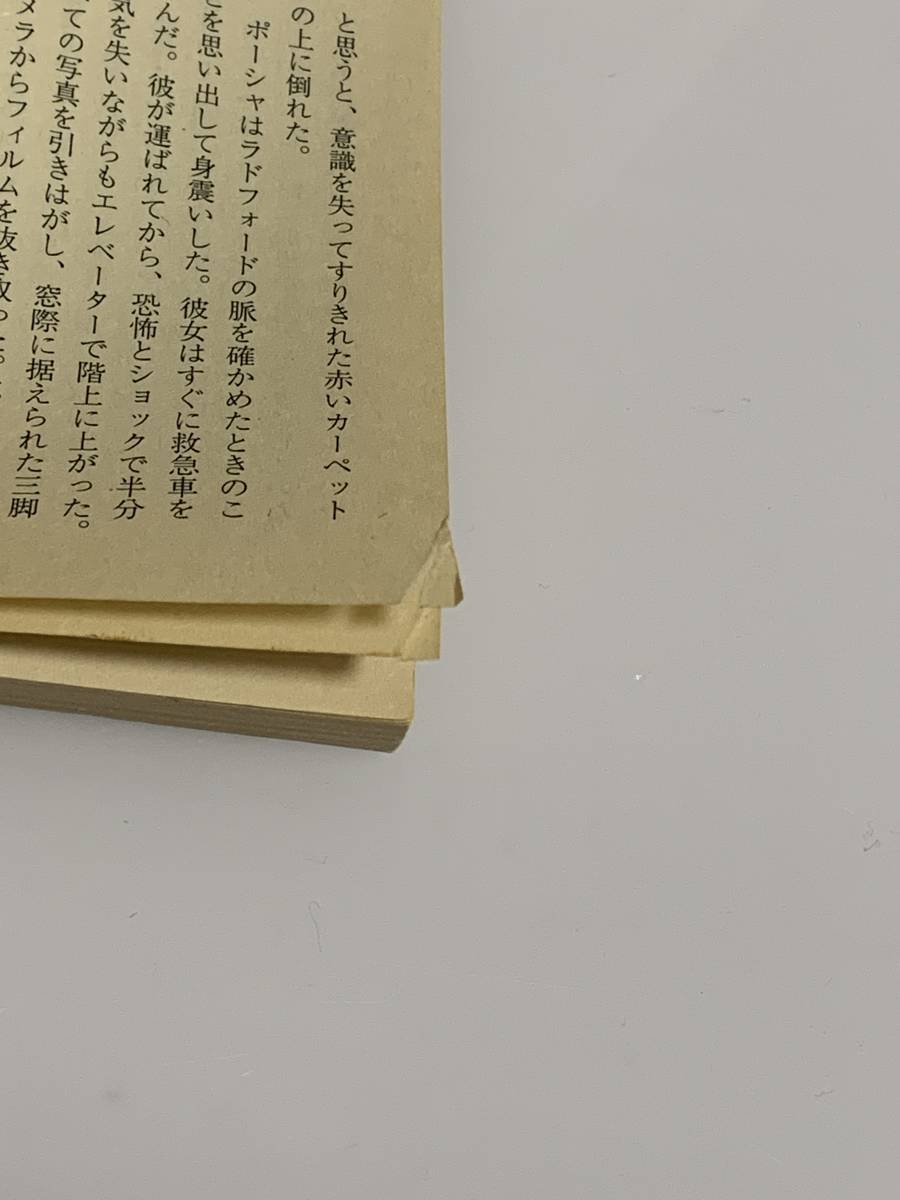 と思うと、意識を失ってすりきれた赤いカーペット
の上に倒れた。
ポーシャはラドフォードの脈を確かめたときのこ
とを思い出して身震いした。彼女はすぐに救急車を
んだ。彼が運ばれてから、恐怖とショックで半分
気を失いながらもエレベーターで階上に上がった。
ての写真を引きはがし、窓際に据えられた三脚
メラからフィルムを抜き取った。